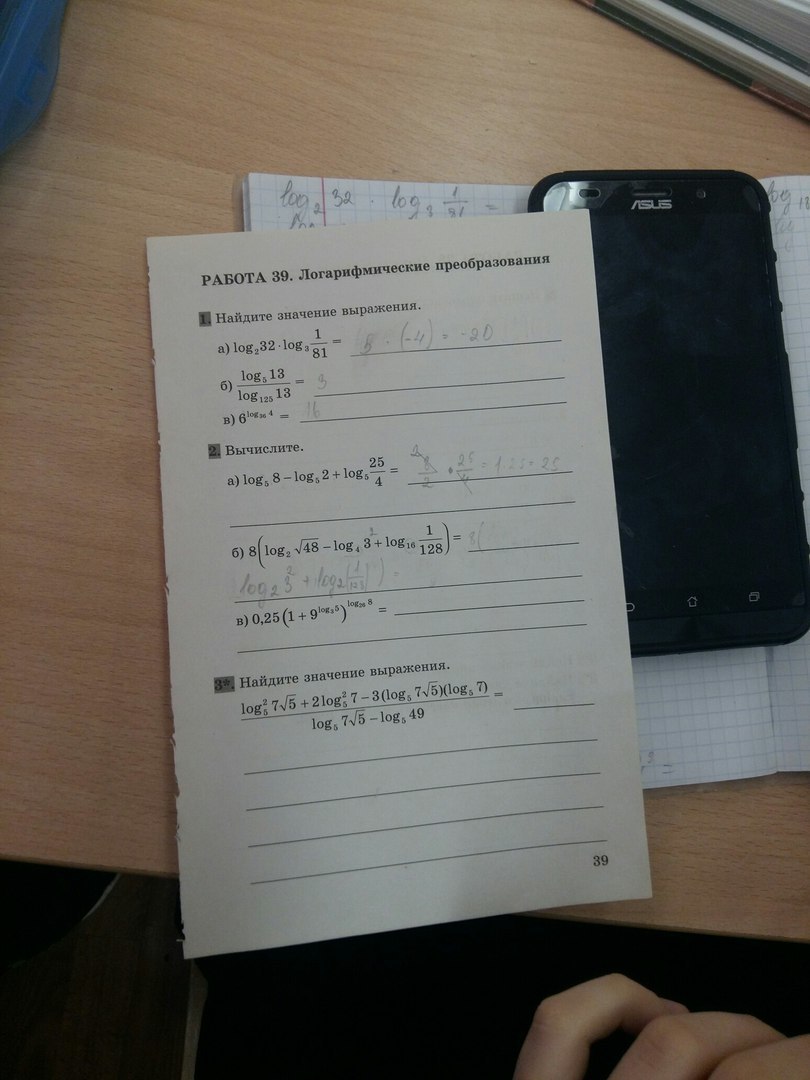 log₂ 32 · log₃ 1/81 =
ASUS
РАБОТА 39. Логарифмические преобразования
1. Найдите значение выражения.
а) log₂32·log₃ 1/81 = 5 · (-4) = -20
б) log₅13/log₁₂₅13 = 3
в) 6^(log₃₆ 4) = 16
2. Вычислите.
а) log₅ 8 − log₅ 2 + log₅ 25/4 = 8/2 · 25/4 = 1 25 = 25
б) 8(log₂ √48 − log₄ 3 + log₁₆ 1/128) = 8(
log₂ 3² + log₂(1/128)) =
в) 0,25(1 + 9^(log₃5))^(log₂₆ 8) =
3*. Найдите значение выражения.
(log₅² 7√5 + 2 log₅² 7 − 3(log₅ 7√5)(log₅ 7))/(log₅ 7√5 − log₅ 49) =
39